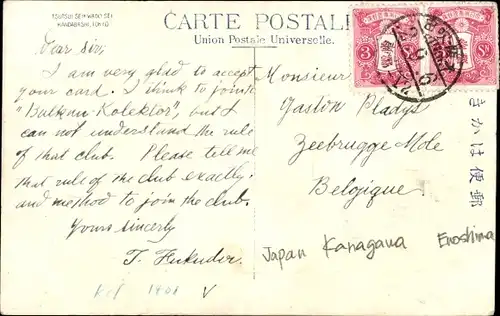 CARTE POSTALE
Union Postale Universelle.
TSUTSUI SEIHANJO SEI
KANDABASHI, TOKYO
Dear Sir,
I am very glad to accept
your card. I think to join
"Balkan-Kolektor", but I
can not understand the rule
of that club. Please tell me
that rule of the club exactly,
and method to join the club.
Yours sincerly
T. Fukuda.
Monsieur
Gaston Pladys
Zeebrugge Mole
Belgique.
3 Sn
きかは便郵
Japan Kanagawa Enoshima